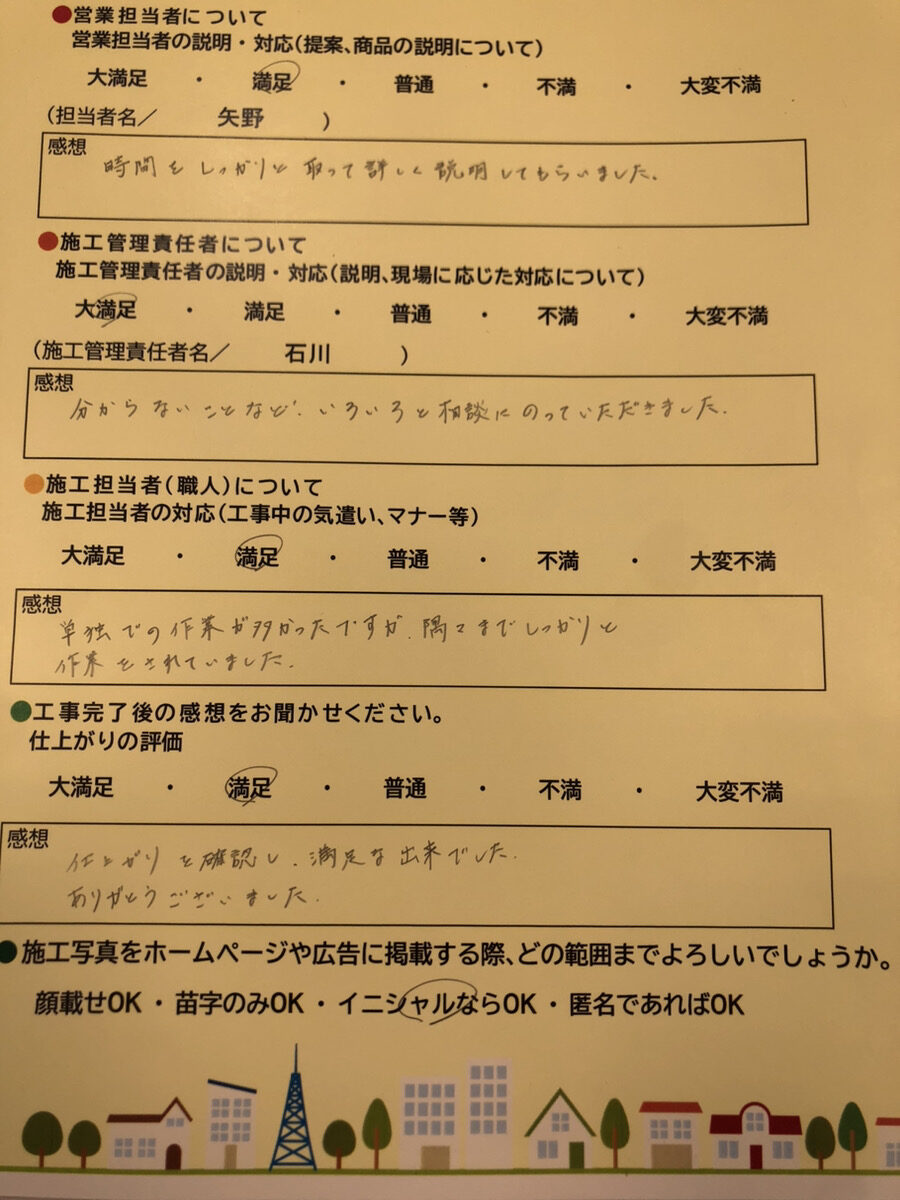 ●営業担当者について
営業担当者の説明・対応(提案、商品の説明について)
大満足 ・ 満足 ・ 普通 ・ 不満 ・ 大変不満
(担当者名／ 矢野 )
感想
時間をしっかりと取って詳しく説明してもらいました。
●施工管理責任者について
施工管理責任者の説明・対応(説明、現場に応じた対応について)
大満足 ・ 満足 ・ 普通 ・ 不満 ・ 大変不満
(施工管理責任者名／ 石川 )
感想
分からないことなど、いろいろと相談にのっていただきました。
●施工担当者(職人)について
施工担当者の対応(工事中の気遣い、マナー等)
大満足 ・ 満足 ・ 普通 ・ 不満 ・ 大変不満
感想
単独での作業が多かったですが、隅々までしっかりと
作業をされていました。
●工事完了後の感想をお聞かせください。
仕上がりの評価
大満足 ・ 満足 ・ 普通 ・ 不満 ・ 大変不満
感想
仕上がりを確認し、満足な出来でした。
ありがとうございました。
●施工写真をホームページや広告に掲載する際、どの範囲までよろしいでしょうか。
顔載せOK・苗字のみOK・イニシャルならOK・匿名であればOK